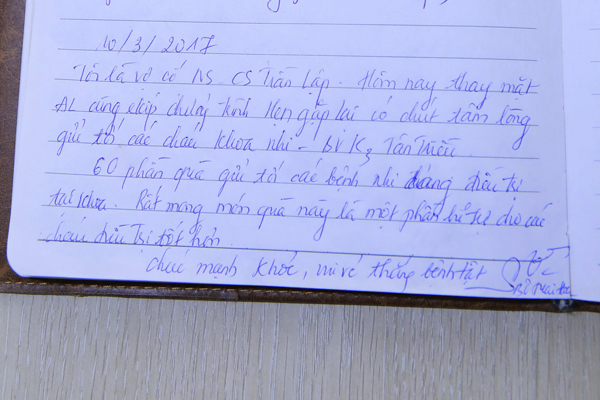 10/3/2017
Tôi là vợ cố NS - CS Trần Lập. Hôm nay thay mặt
AL cùng ekip chương trình Hẹn gặp lại có chút tấm lòng
gửi tới các cháu khoa nhi - bv K3 Tân Triều.
60 phần quà gửi tới các bệnh nhi đang điều trị
tại khoa. Rất mong món quà này là một phần hỗ trợ cho các
cháu điều trị tốt hơn.
chúc mạnh khoẻ, vui vẻ thắng bệnh tật